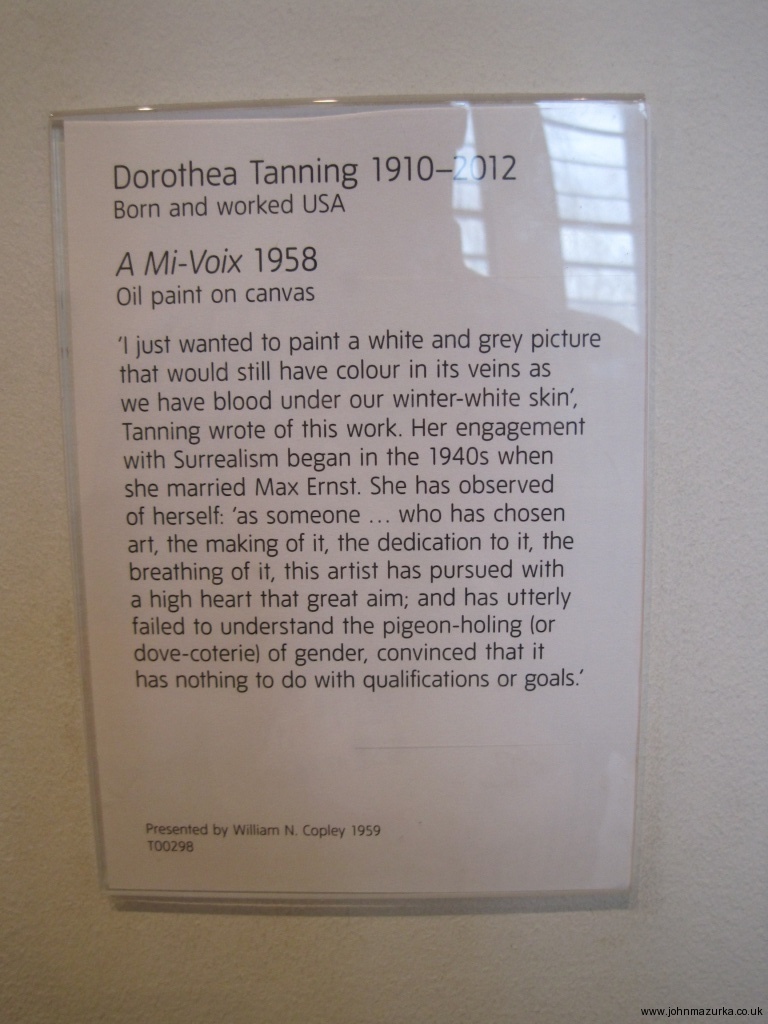 Dorothea Tanning 1910–2012
Born and worked USA
A Mi-Voix 1958
Oil paint on canvas
‘I just wanted to paint a white and grey picture
that would still have colour in its veins as
we have blood under our winter-white skin’,
Tanning wrote of this work. Her engagement
with Surrealism began in the 1940s when
she married Max Ernst. She has observed
of herself: ‘as someone … who has chosen
art, the making of it, the dedication to it, the
breathing of it, this artist has pursued with
a high heart that great aim; and has utterly
failed to understand the pigeon-holing (or
dove-coterie) of gender, convinced that it
has nothing to do with qualifications or goals.’
Presented by William N. Copley 1959
T00298
www.johnmazurka.co.uk